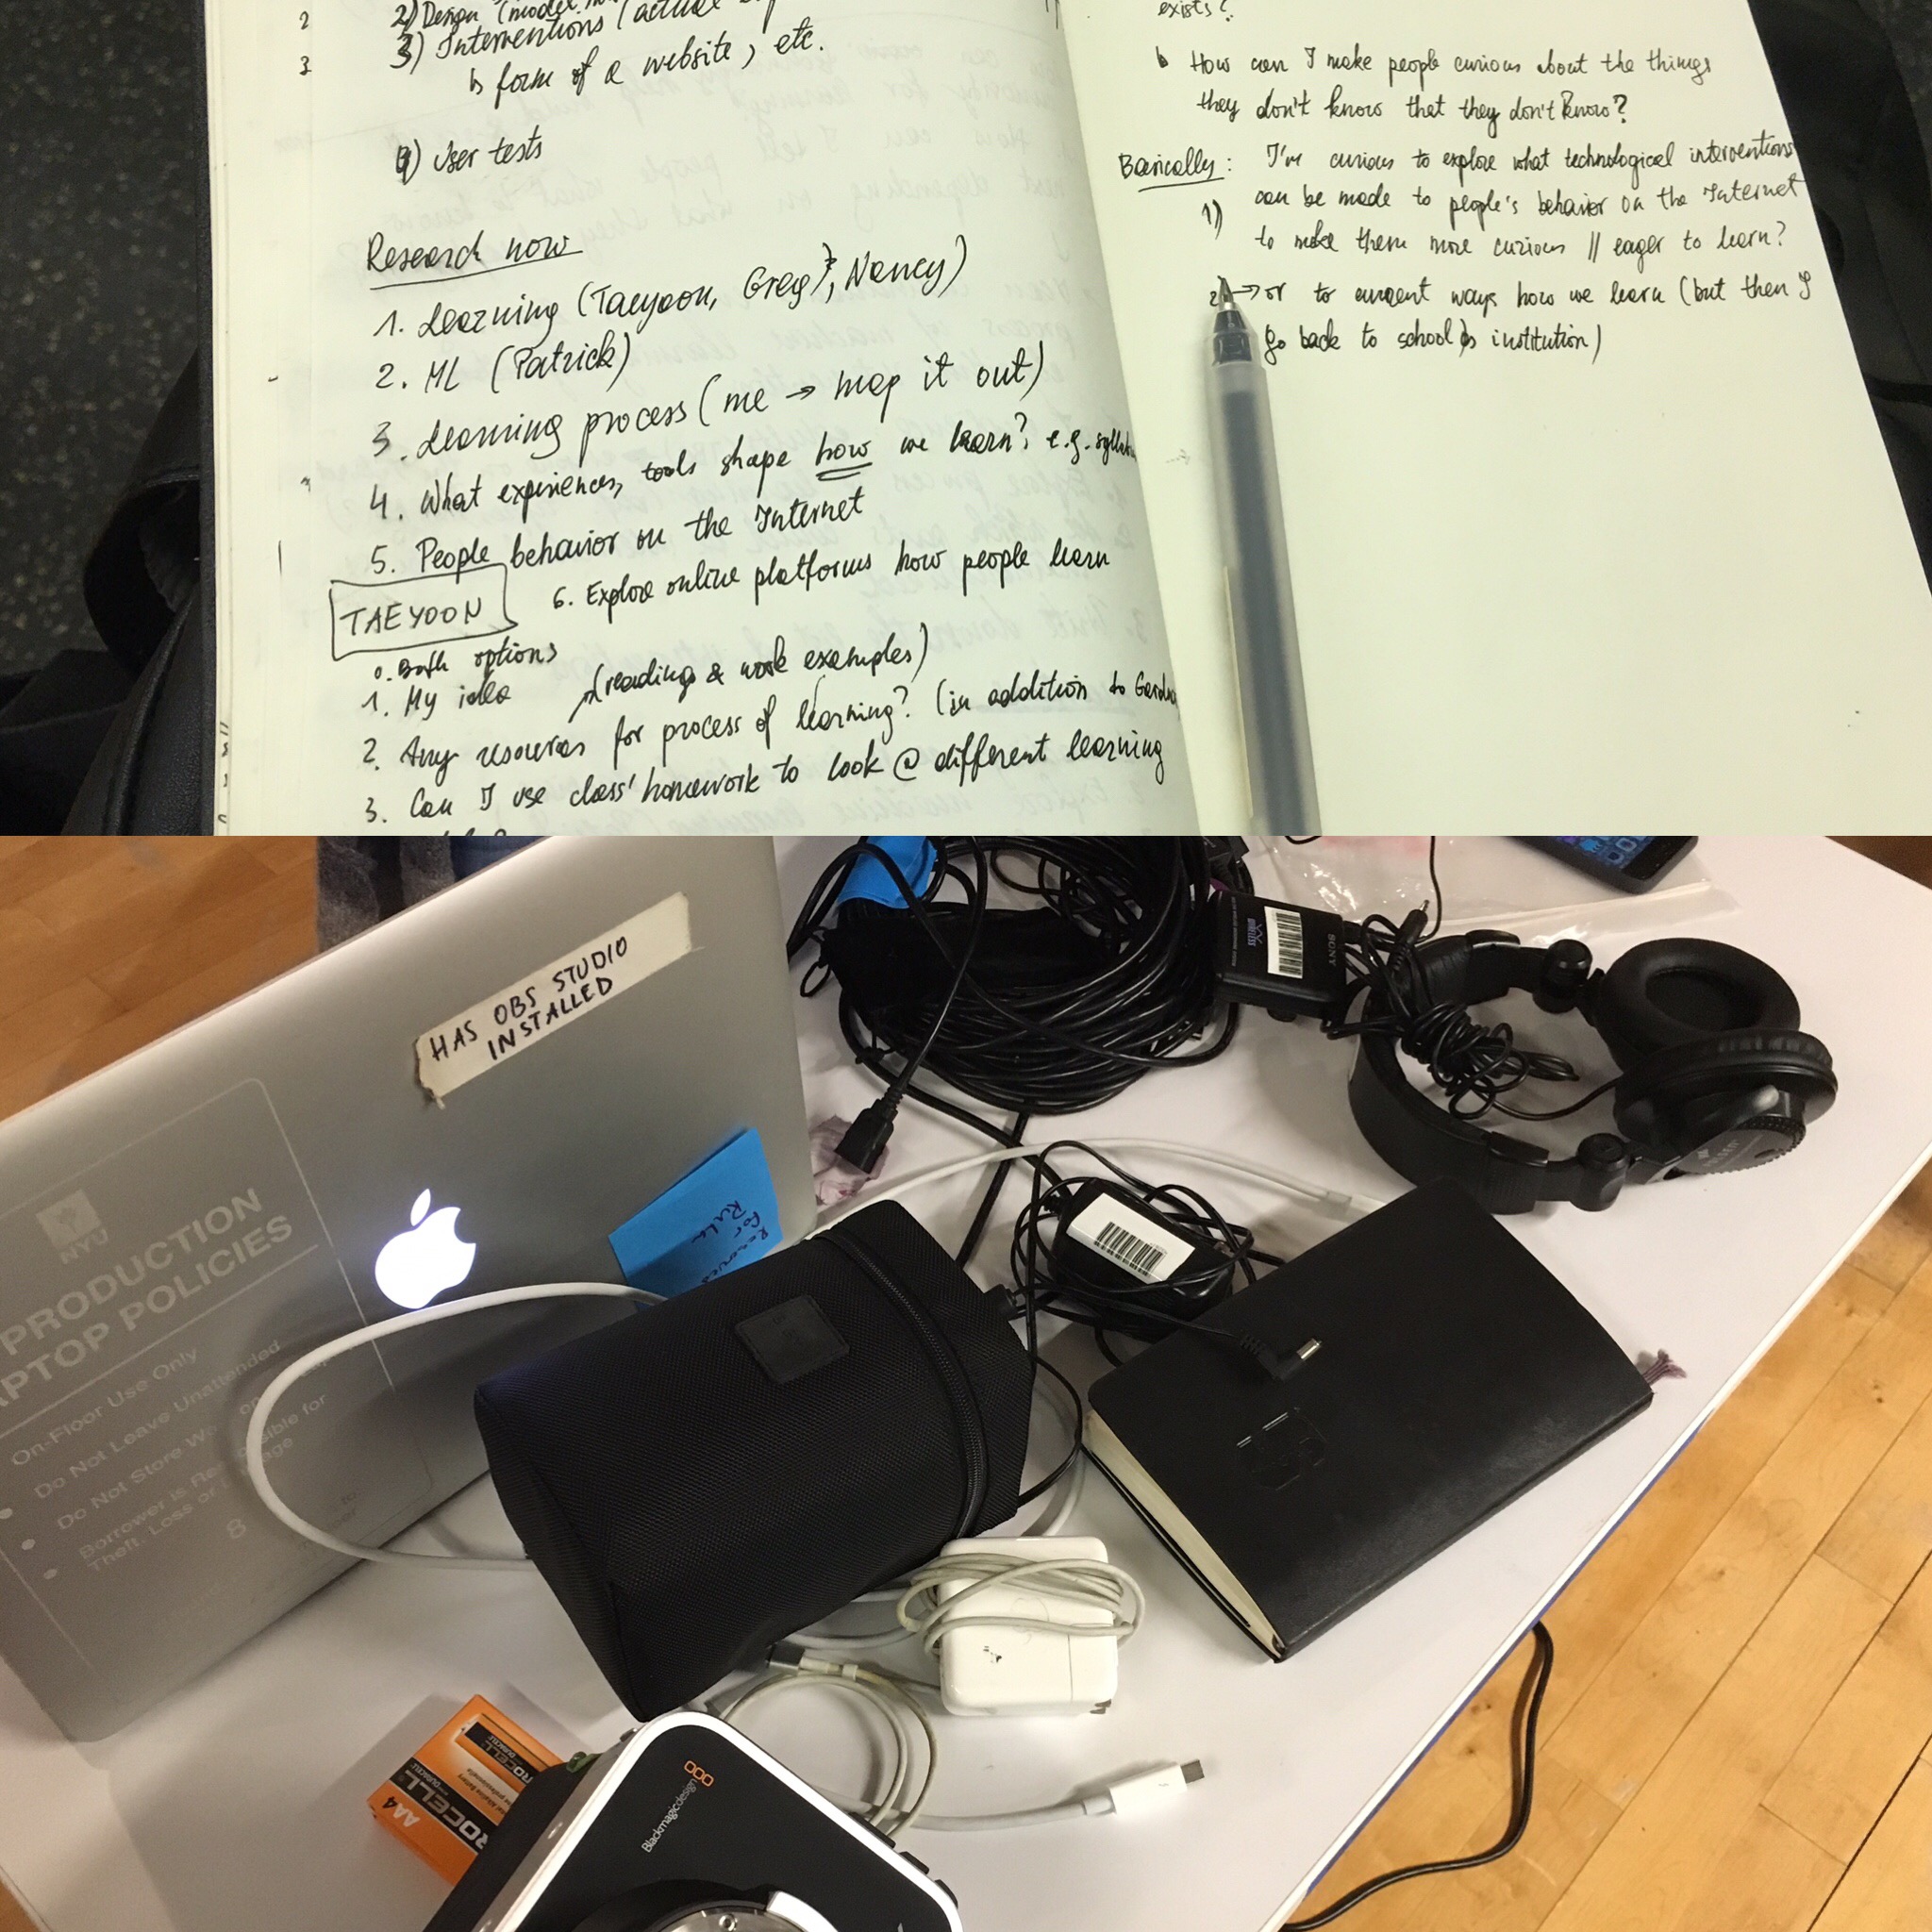 2
3
2) Design (model
3) Interventions (actual
form of a website, etc.
4) User tests
Research now
1. Learning (Taeyoon, Greg), Nancy)
2. ML (Patrick)
3. Learning process (me → map it out)
4. What experiences, tools shape how we learn? e.g.
5. People behavior on the Internet
TAEYOON
6. Explore online platforms how people learn
0. Both options
1. My idea
(readings & work examples)
2. Any resources for process of learning? (in addition to
3. Can I use class' homework to look @ different learning
exists?
How can I make people curious about the things
they don't know that they don't know?
Basically: I'm curious to explore what technological interventions
1) can be made to people's behavior on the Internet
to make them more curious || eager to learn?
→ or to current ways how we learn (but then I
go back to school institution)
HAS OBS STUDIO
INSTALLED
NYU
PRODUCTION
APTOP POLICIES
On-Floor Use Only
Do Not Leave Unattended
Do Not Store
Borrower is
Theft, Loss or
for
8
for
SONY
Blackmagicdesign
PROCELL
DURACELL
ROCELL
DURACELL
AA4